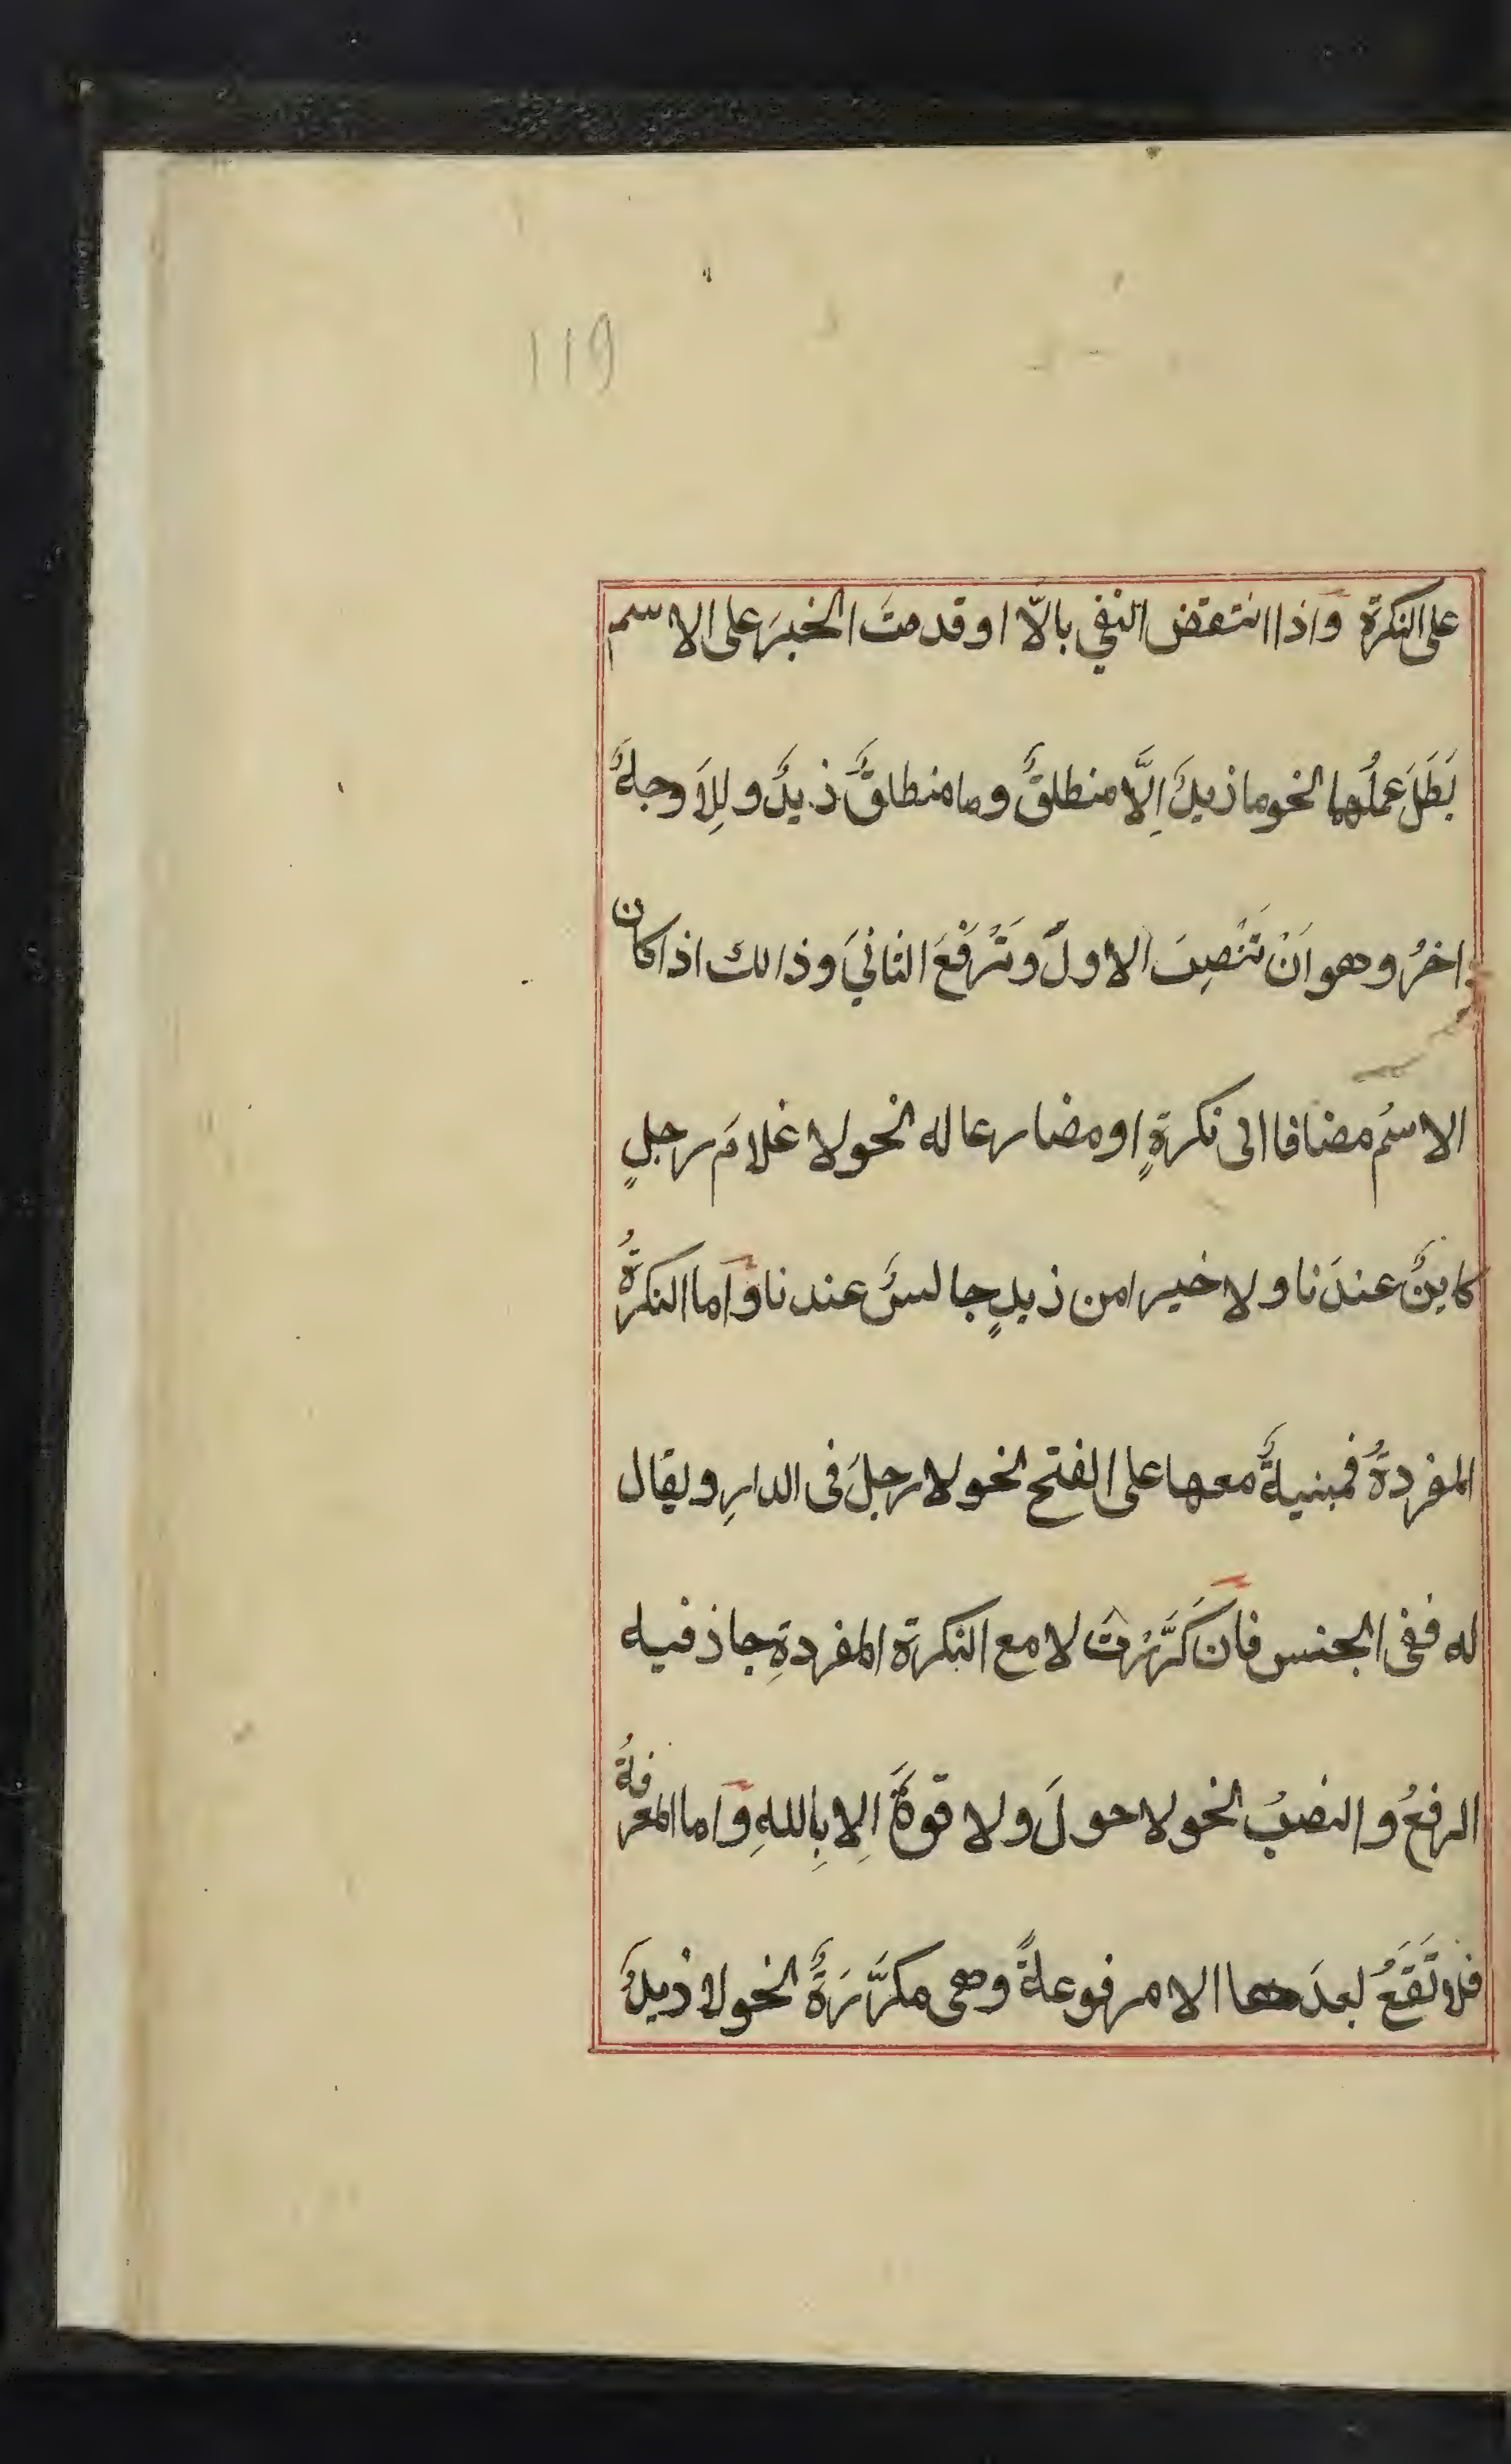 119
على النكرة واذا انتقض النفي بالّا او قدمتَ الخبرَ على الاسم
بَطَلَ عملُهما نحو ما زيدٌ اِلَّا منطلقٌ وما منطلقٌ زيدٌ وللِاَ وجهٌ
اخرُ وهو اَنْ تَنْصِبَ الاولَ وَتَرْفَعَ الثانيَ وذالك اذا كان
الاسمُ مضافا الى نكرةٍ او مضارعا له نحو لا غلامَ رجلٍ
كاينٌ عندَنا ولا خيرا من زيدٍ جالسٌ عندنا واما النكرةُ
المفردةُ فمبنيةٌ معها على الفتح نحو لا رجلَ فى الدارِ ويقال
له نفى الجنس فان كَرَّرْتَ لا مع النكرة المفردةِ جاز فيه
الرفعُ والنصبُ نحو لا حولَ ولا قوةَ اِلا بِاللهِ واما المعرفةُ
فلا تَقَعُ بعدَها الا مرفوعةً وهى مكرَّرَةٌ نحو لا زيدٌ